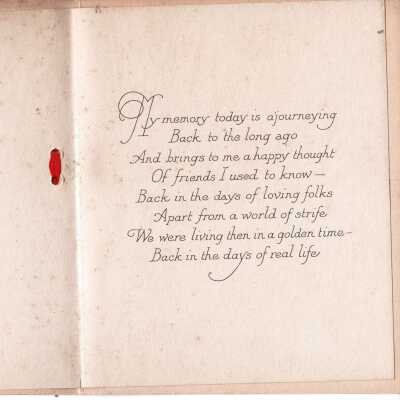 My memory today is a journeying
Back to the long ago
And brings to me a happy thought
Of friends I used to know —
Back in the days of loving folks
Apart from a world of strife
We were living then in a golden time —
Back in the days of real life